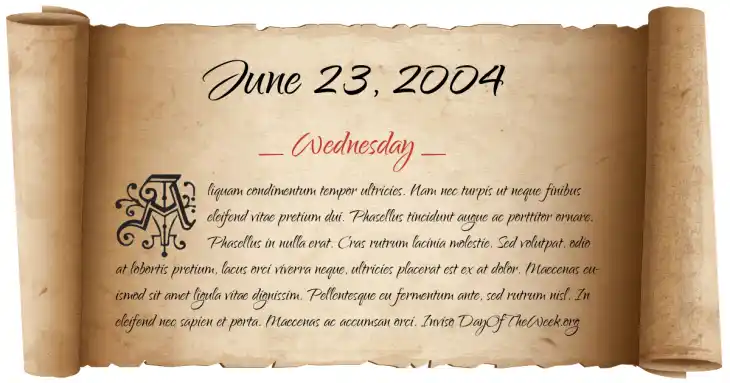 June 23, 2004
_ Wednesday _
Aliquam condimentum tempor ultricies. Nam nec turpis ut neque finibus
eleifend vitae pretium dui. Phasellus tincidunt augue ac porttitor ornare.
Phasellus in nulla erat. Cras rutrum lacinia molestie. Sed volutpat, odio
at lobortis pretium, lacus orci viverra neque, ultricies placerat est ex at dolor. Maecenas eu-
ismod sit amet ligula vitae dignissim. Pellentesque eu fermentum ante, sed rutrum nisl. In
eleifend nec sapien et porta. Maecenas ac accumsan orci. Inviso DayOfTheWeek.org